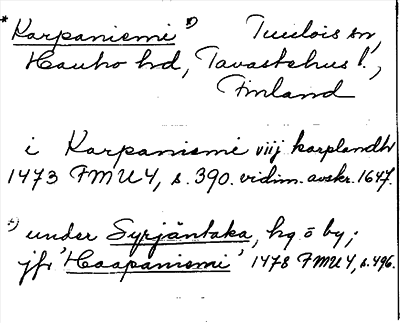 *Karpaniemi *) Tuulois sn,
Hauho hd, Tavastehus l.,
Finland
i Karpaniemi viij karplandh
1473 FMU4, s. 390. vidim. avskr. 1647.
*) under Syrjäntaka, hg o by;
jfr 'Haapaniemi' 1478 FMU4, s. 496.